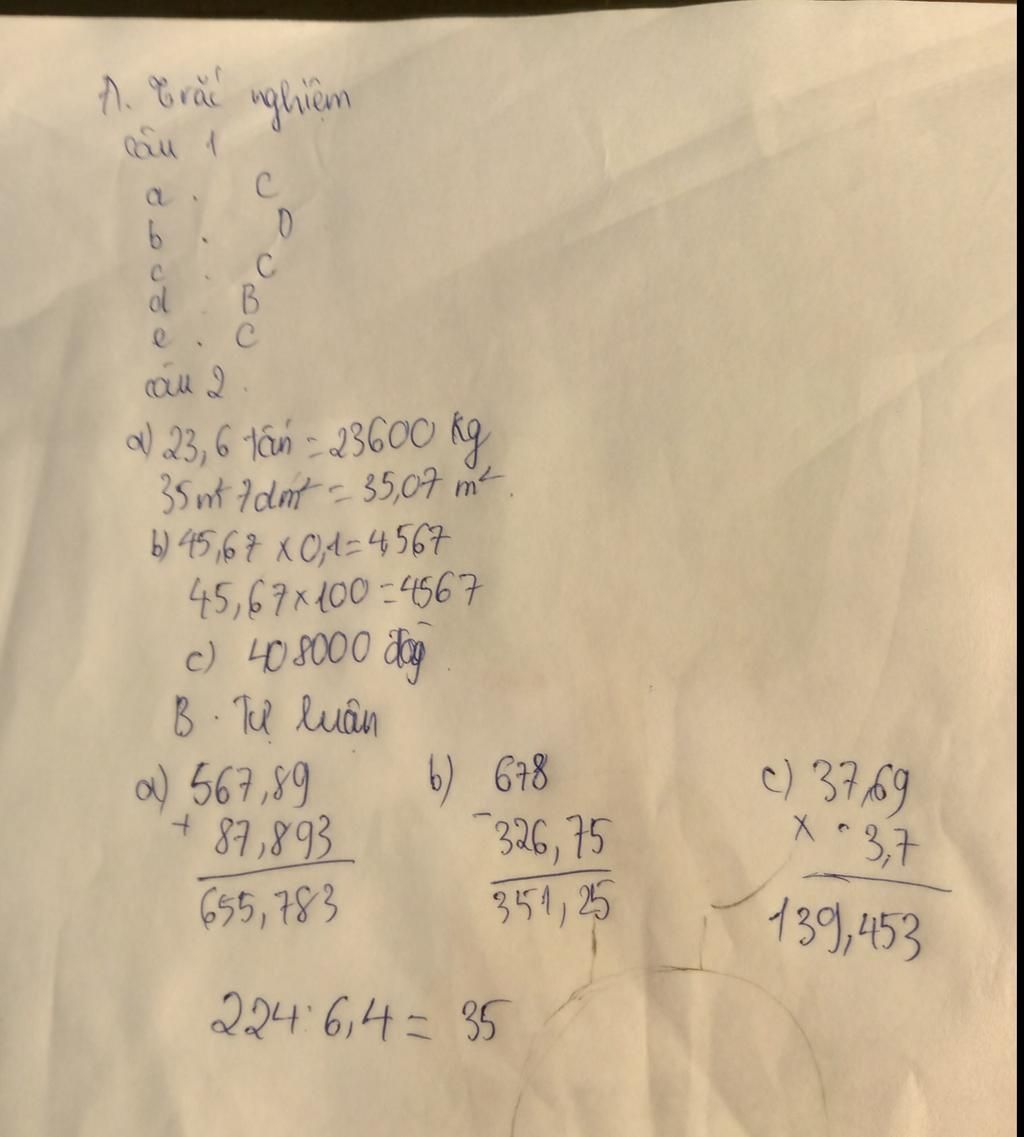 A. Trắc nghiệm
câu 1
a. C
b. D
c. C
d. B
e. C
câu 2.
a) 23,6 tấn = 23600 kg
35m² 7dm² = 35,07 m².
b) 45,67 x 0,1 = 4,567
45,67 x 100 = 4567
c) 408000 đồng
B. Tự luận
a) 567,89 b) 678 c) 37,69
+ 87,893 - 326,75 x 3,7
655,783 351,25 139,453
224 : 6,4 = 35